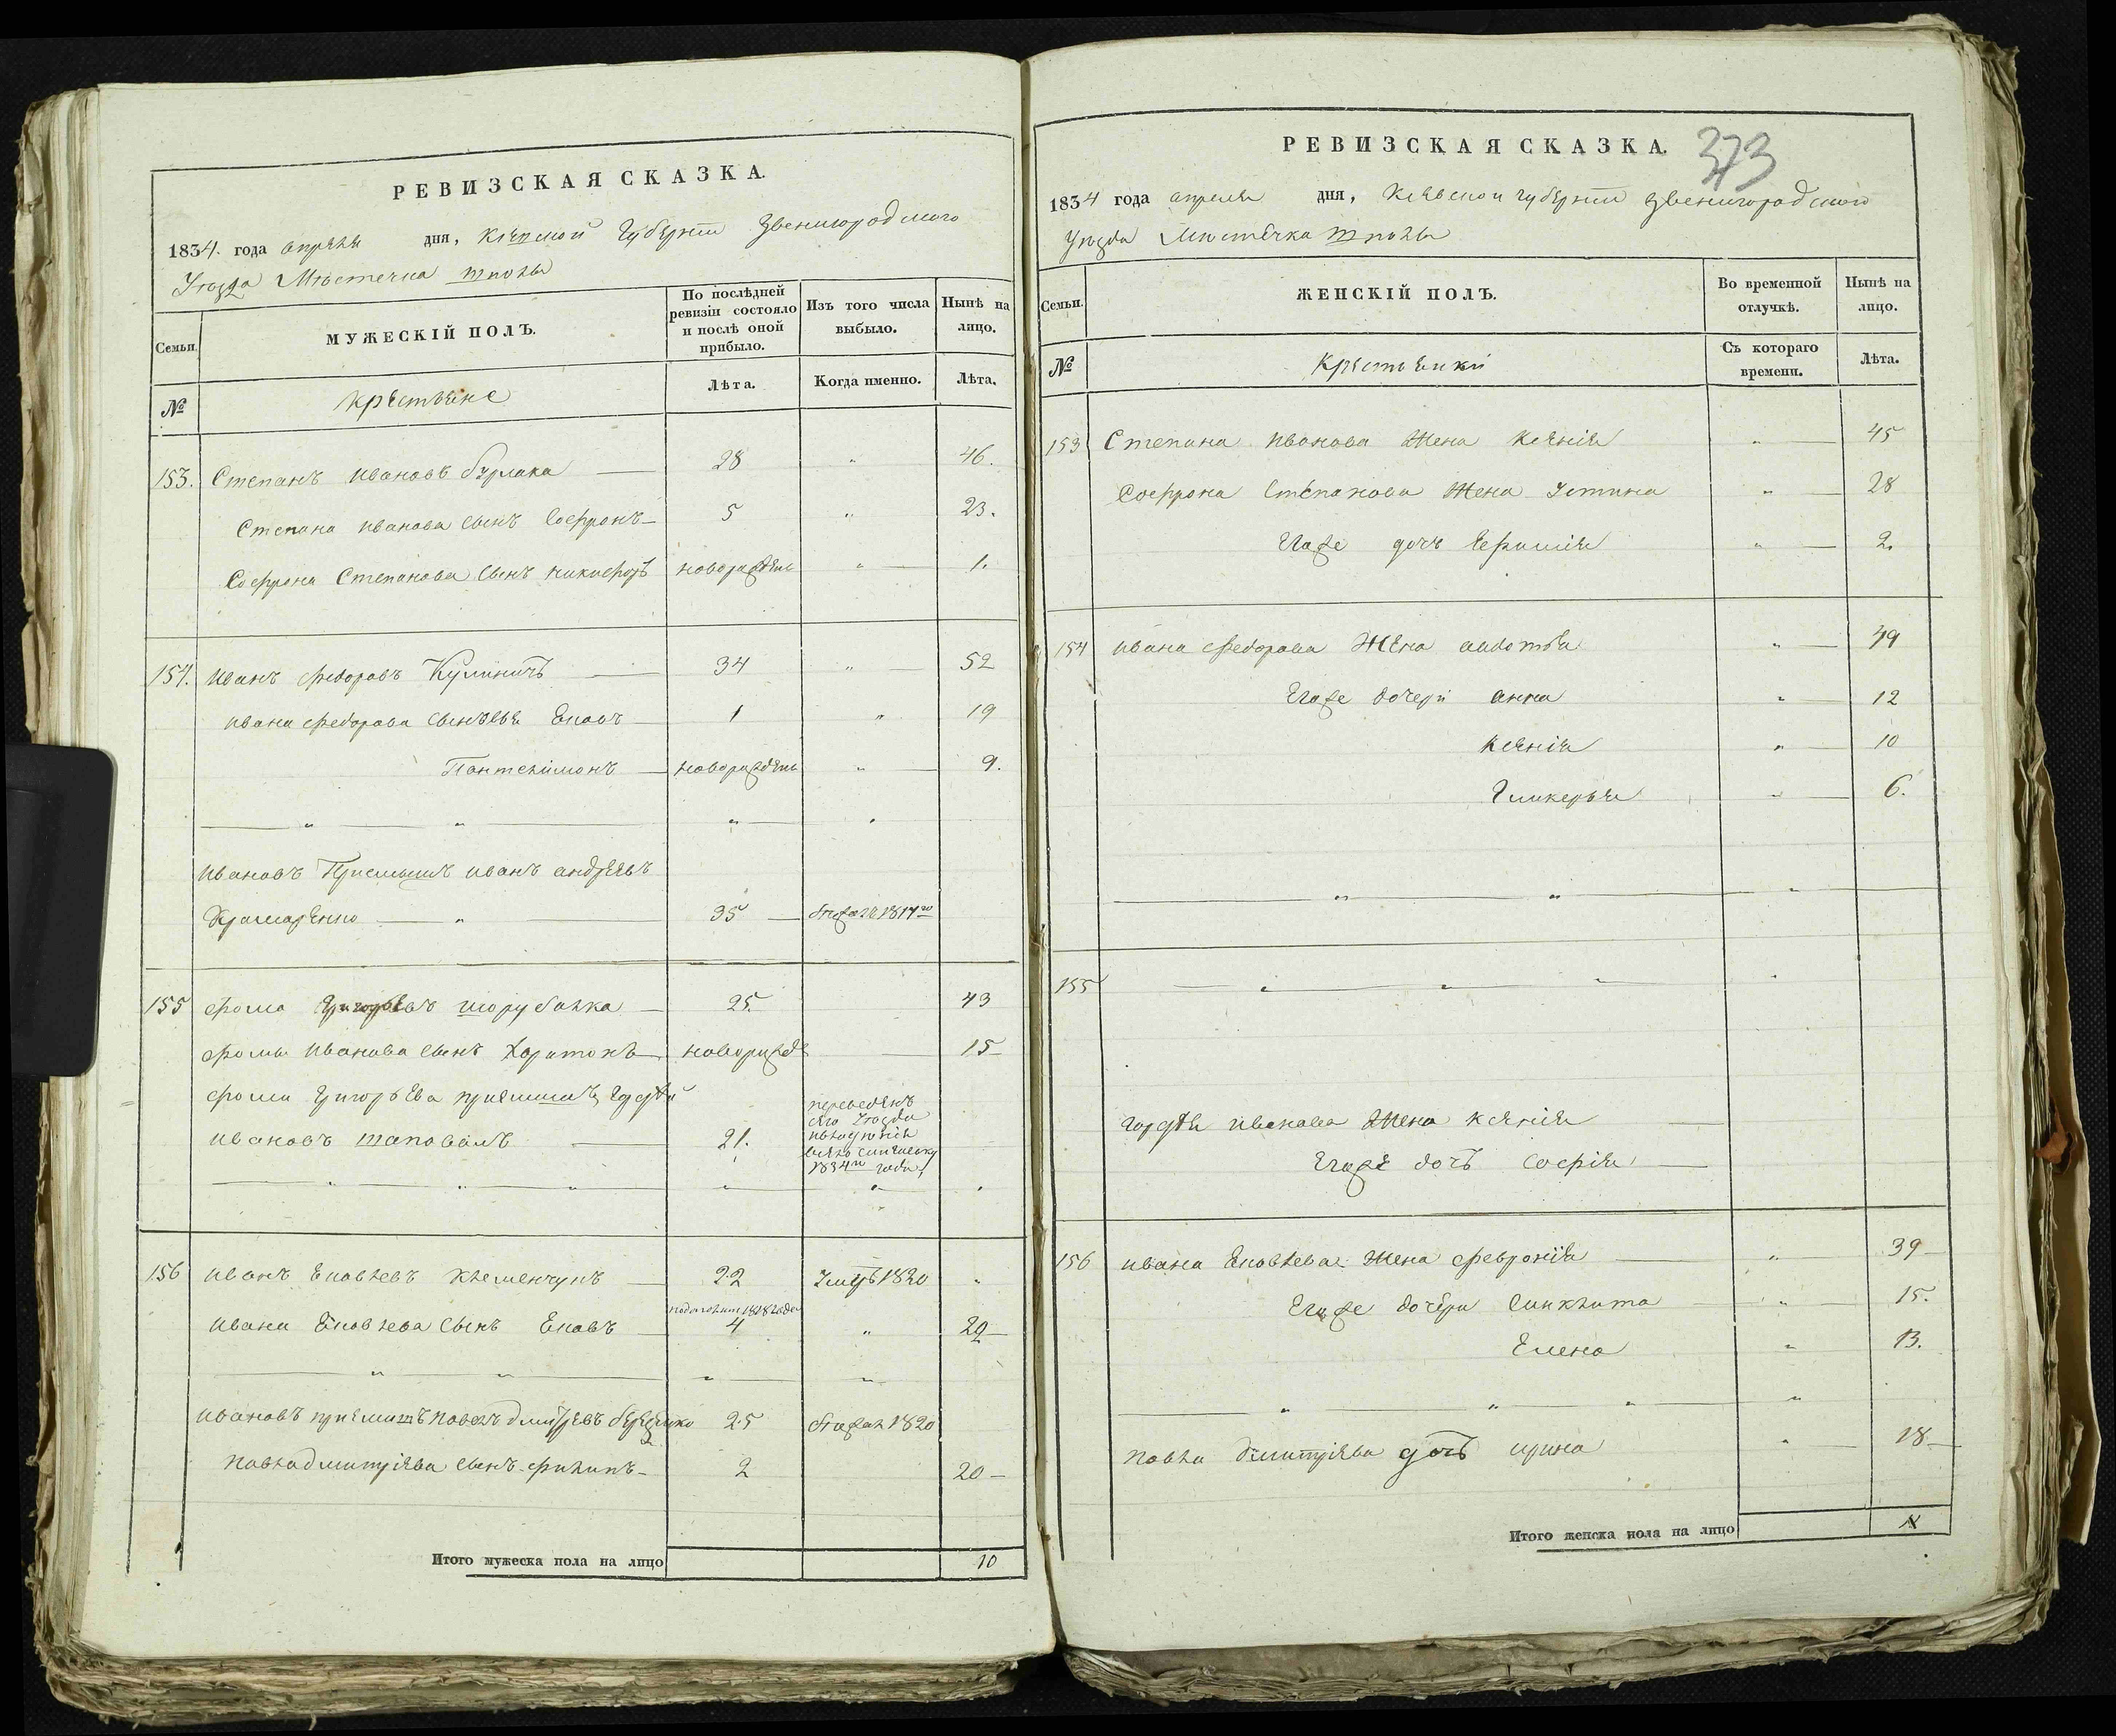 РЕВИЗСКАЯ СКАЗКА.
1834. года апреля дня, Киевской Губернии Звенигородского
Уезда Местечка Шполы
Семьи.
МУЖЕСКІЙ ПОЛЪ.
По послѣдней ревизіи состояло и послѣ оной прибыло.
Изъ того числа выбыло.
Нынѣ на лицо.
№
Крестьяне
Лѣта.
Когда именно.
Лѣта.
153. Степанъ Ивановъ Бурлака 28 " 46.
Степана Иванова сынъ Софронъ 5 " 23.
Софрона Степанова сынъ Никифоръ новорожденъ " 1.
154. Иванъ Федоровъ Кулиничъ 34 " 52
Ивана Федорова сыновья Яковъ 1 " 19
Пантелимонъ новорожденъ " 9.
Ивановъ Приемышъ Иванъ Андреевъ
Крамаренко " 35 бежалъ 1817го
155 Фома Григорьевъ 25. 43
Фомы Иванова сынъ Харитонъ новорожд 15
Фомы Григорьева приемышъ Гордѣй
Ивановъ Шаповалъ 21. переведенъ
сего Уезда
1834го года
156 Иванъ Яковлевъ Кременчукъ 22 Умеръ 1820 "
Ивана Яковлева сынъ Яковъ 4 " 20
Ивановъ приемышъ Павелъ Дмитревъ 25 бежал 1820
Павла Дмитриева сынъ Филипъ 2 20
Итого мужеска пола на лицо 10
РЕВИЗСКАЯ СКАЗКА.
373
1834 года апреля дня, Киевской губернии Звенигородского
Уезда Местечка Шполы
Семьи.
ЖЕНСКІЙ ПОЛЪ.
Во временной отлучкѣ.
Нынѣ на лицо.
№
Крестьянки
Съ котораго времени.
Лѣта.
153 Степана Иванова Жена Ксенія " 45
Софрона Степанова Жена Устина " 28
Егоже дочь " 2.
154 Ивана Федорова Жена Авдотья " 49
Егоже дочери Анна " 12
Ксенія " 10
Гликерья " 6.
155
Гордѣя Иванова Жена Ксенія
Егоже дочь Софія
156 Ивана Яковлева Жена Февронія " 39
Егоже дочери Синклита " 15.
Елена " 13.
Павла Дмитріева дочь Ирина " 18
Итого женска пола на лицо